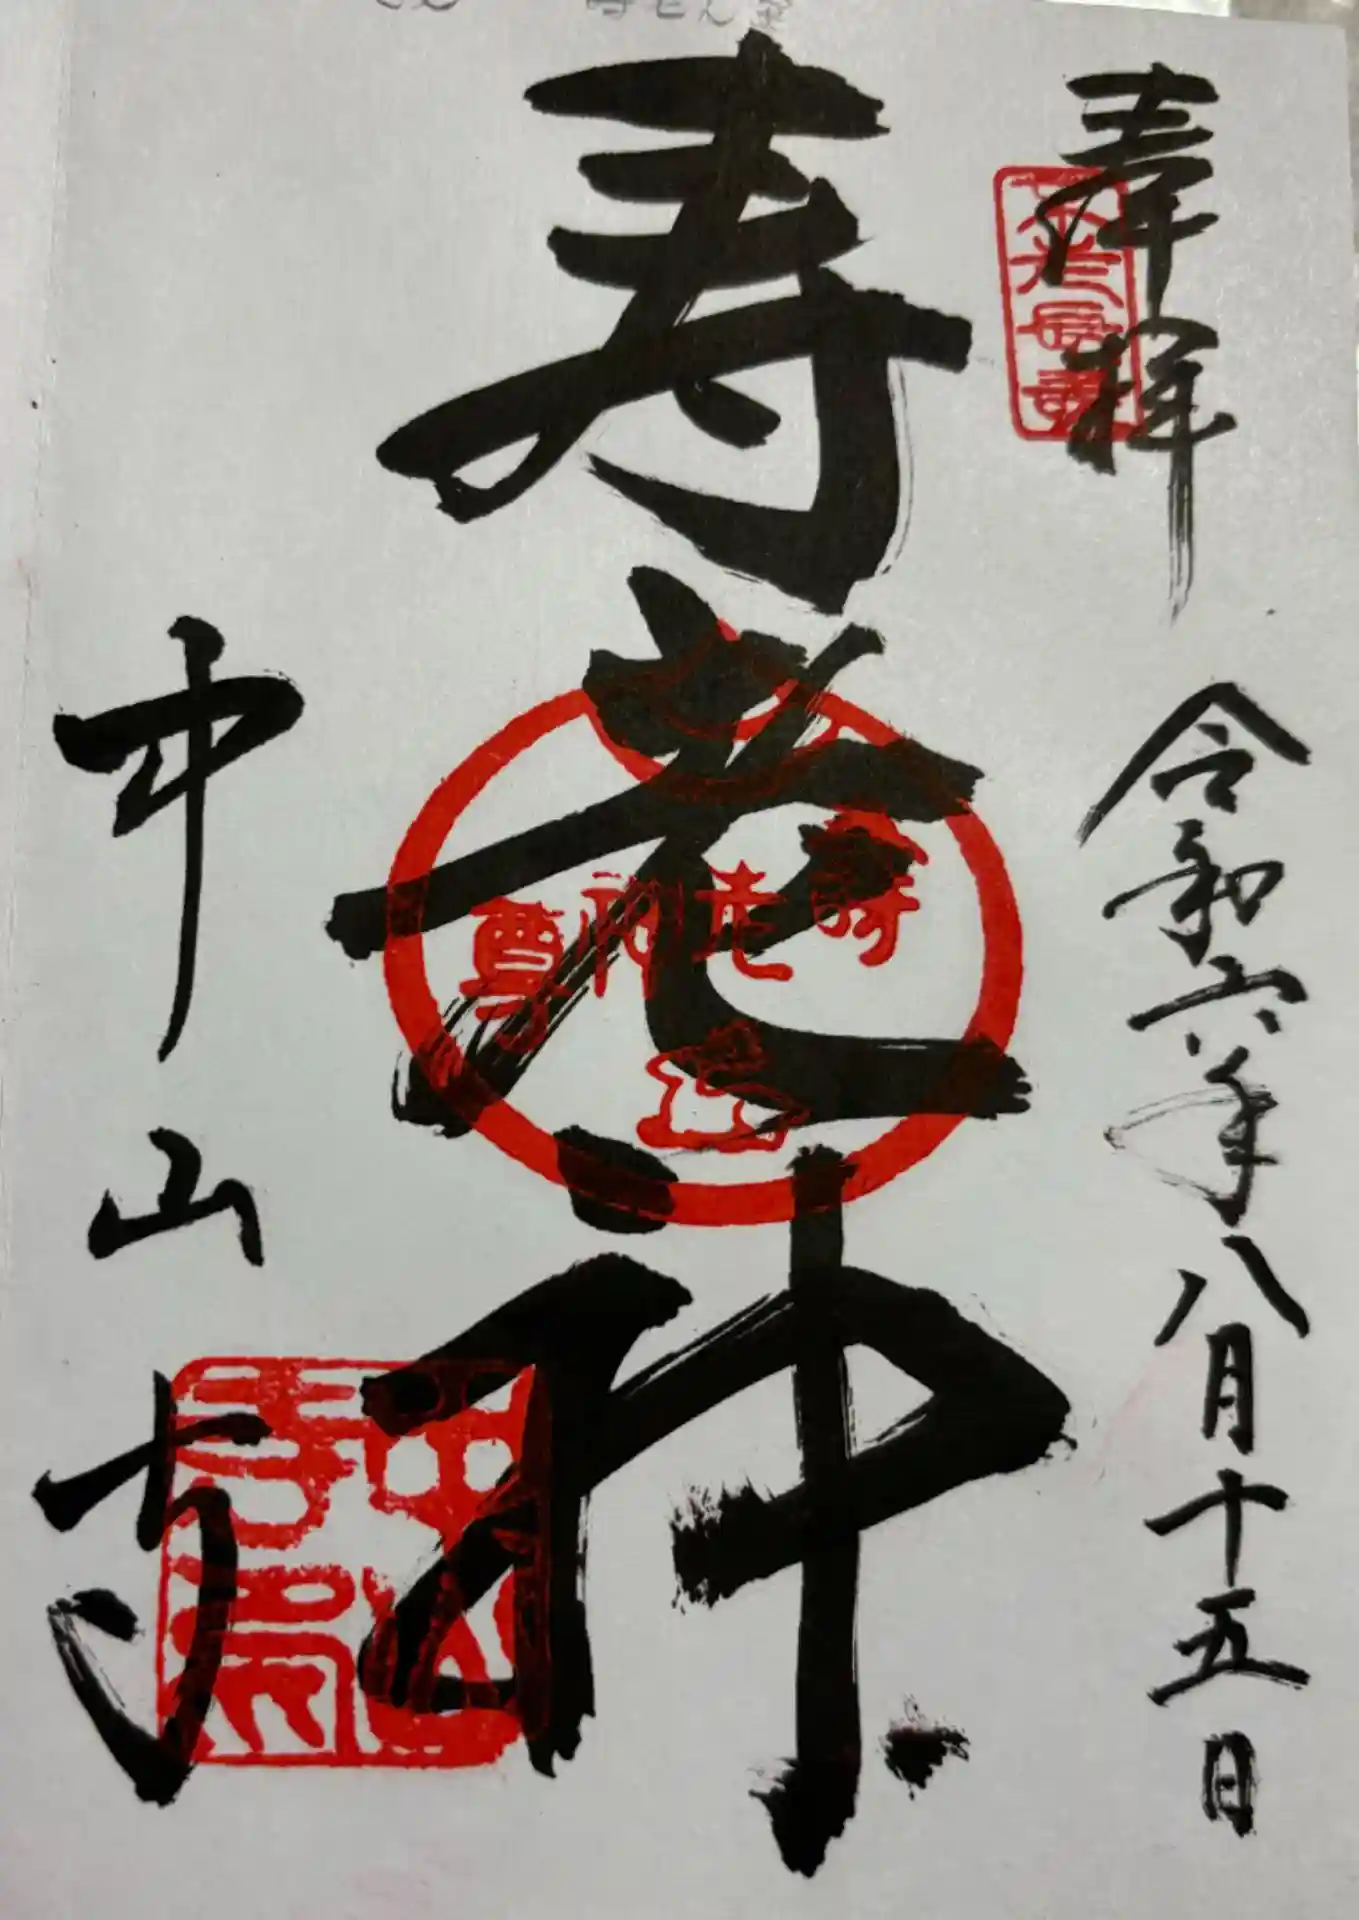 奉拝
令和六年八月十五日
寿老神
寿老神尊
中山寺